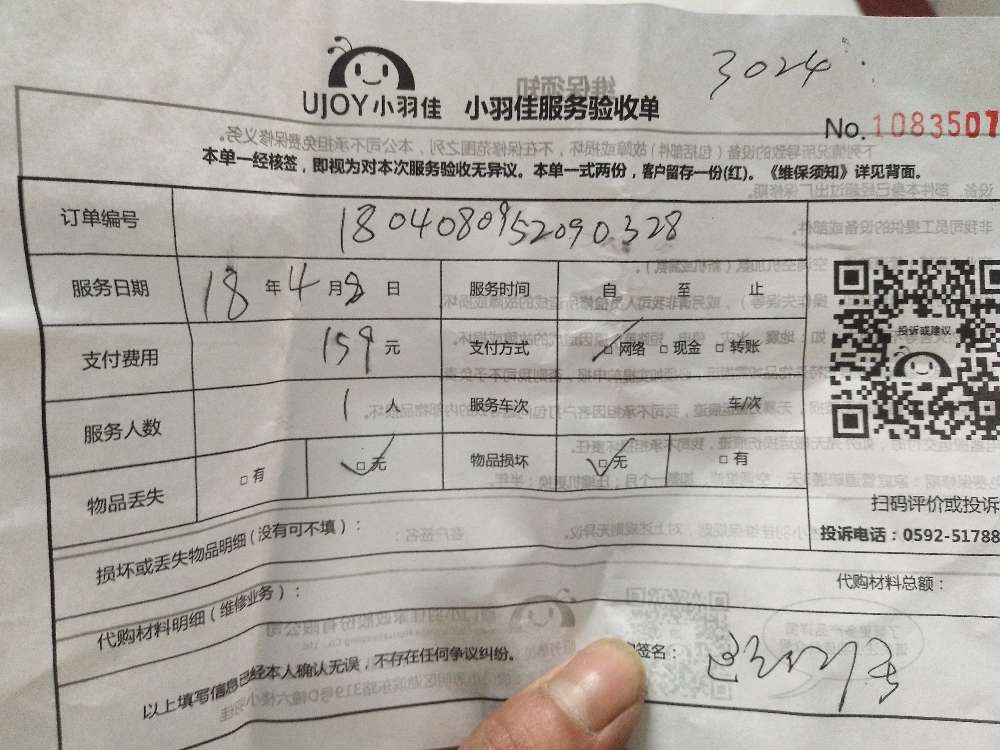 3024
UJOY小羽佳 小羽佳服务验收单
No.1083507
本单一经核签，即视为对本次服务验收无异议。本单一式两份，客户留存一份(红)。《维保须知》详见背面。
订单编号 1804080952090328
服务日期 18 年 4 月 8 日 服务时间 自 至 止
支付费用 159 元 支付方式 □网络 □现金 □转账
投诉或建议
服务人数 1 人 服务车次 车/次
物品丢失 □有 □无 物品损坏 □无 □有
扫码评价或投诉
投诉电话：0592-51788
损坏或丢失物品明细（没有可不填）：
代购材料明细（维修业务）： 代购材料总额：
以上填写信息已经本人确认无误，不存在任何争议纠纷。 签名：